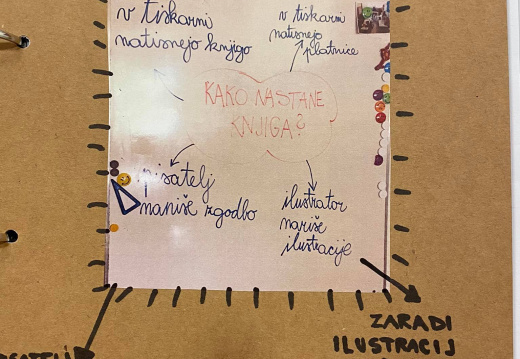 v tiskarni
natisnejo knjigo
v tiskarni
natisnejo
platnice
KAKO NASTANE
KNJIGA?
pisatelj
naniše zgodbo
ilustrator
nariše
ilustracije
ZARADI
ILUSTRACIJ